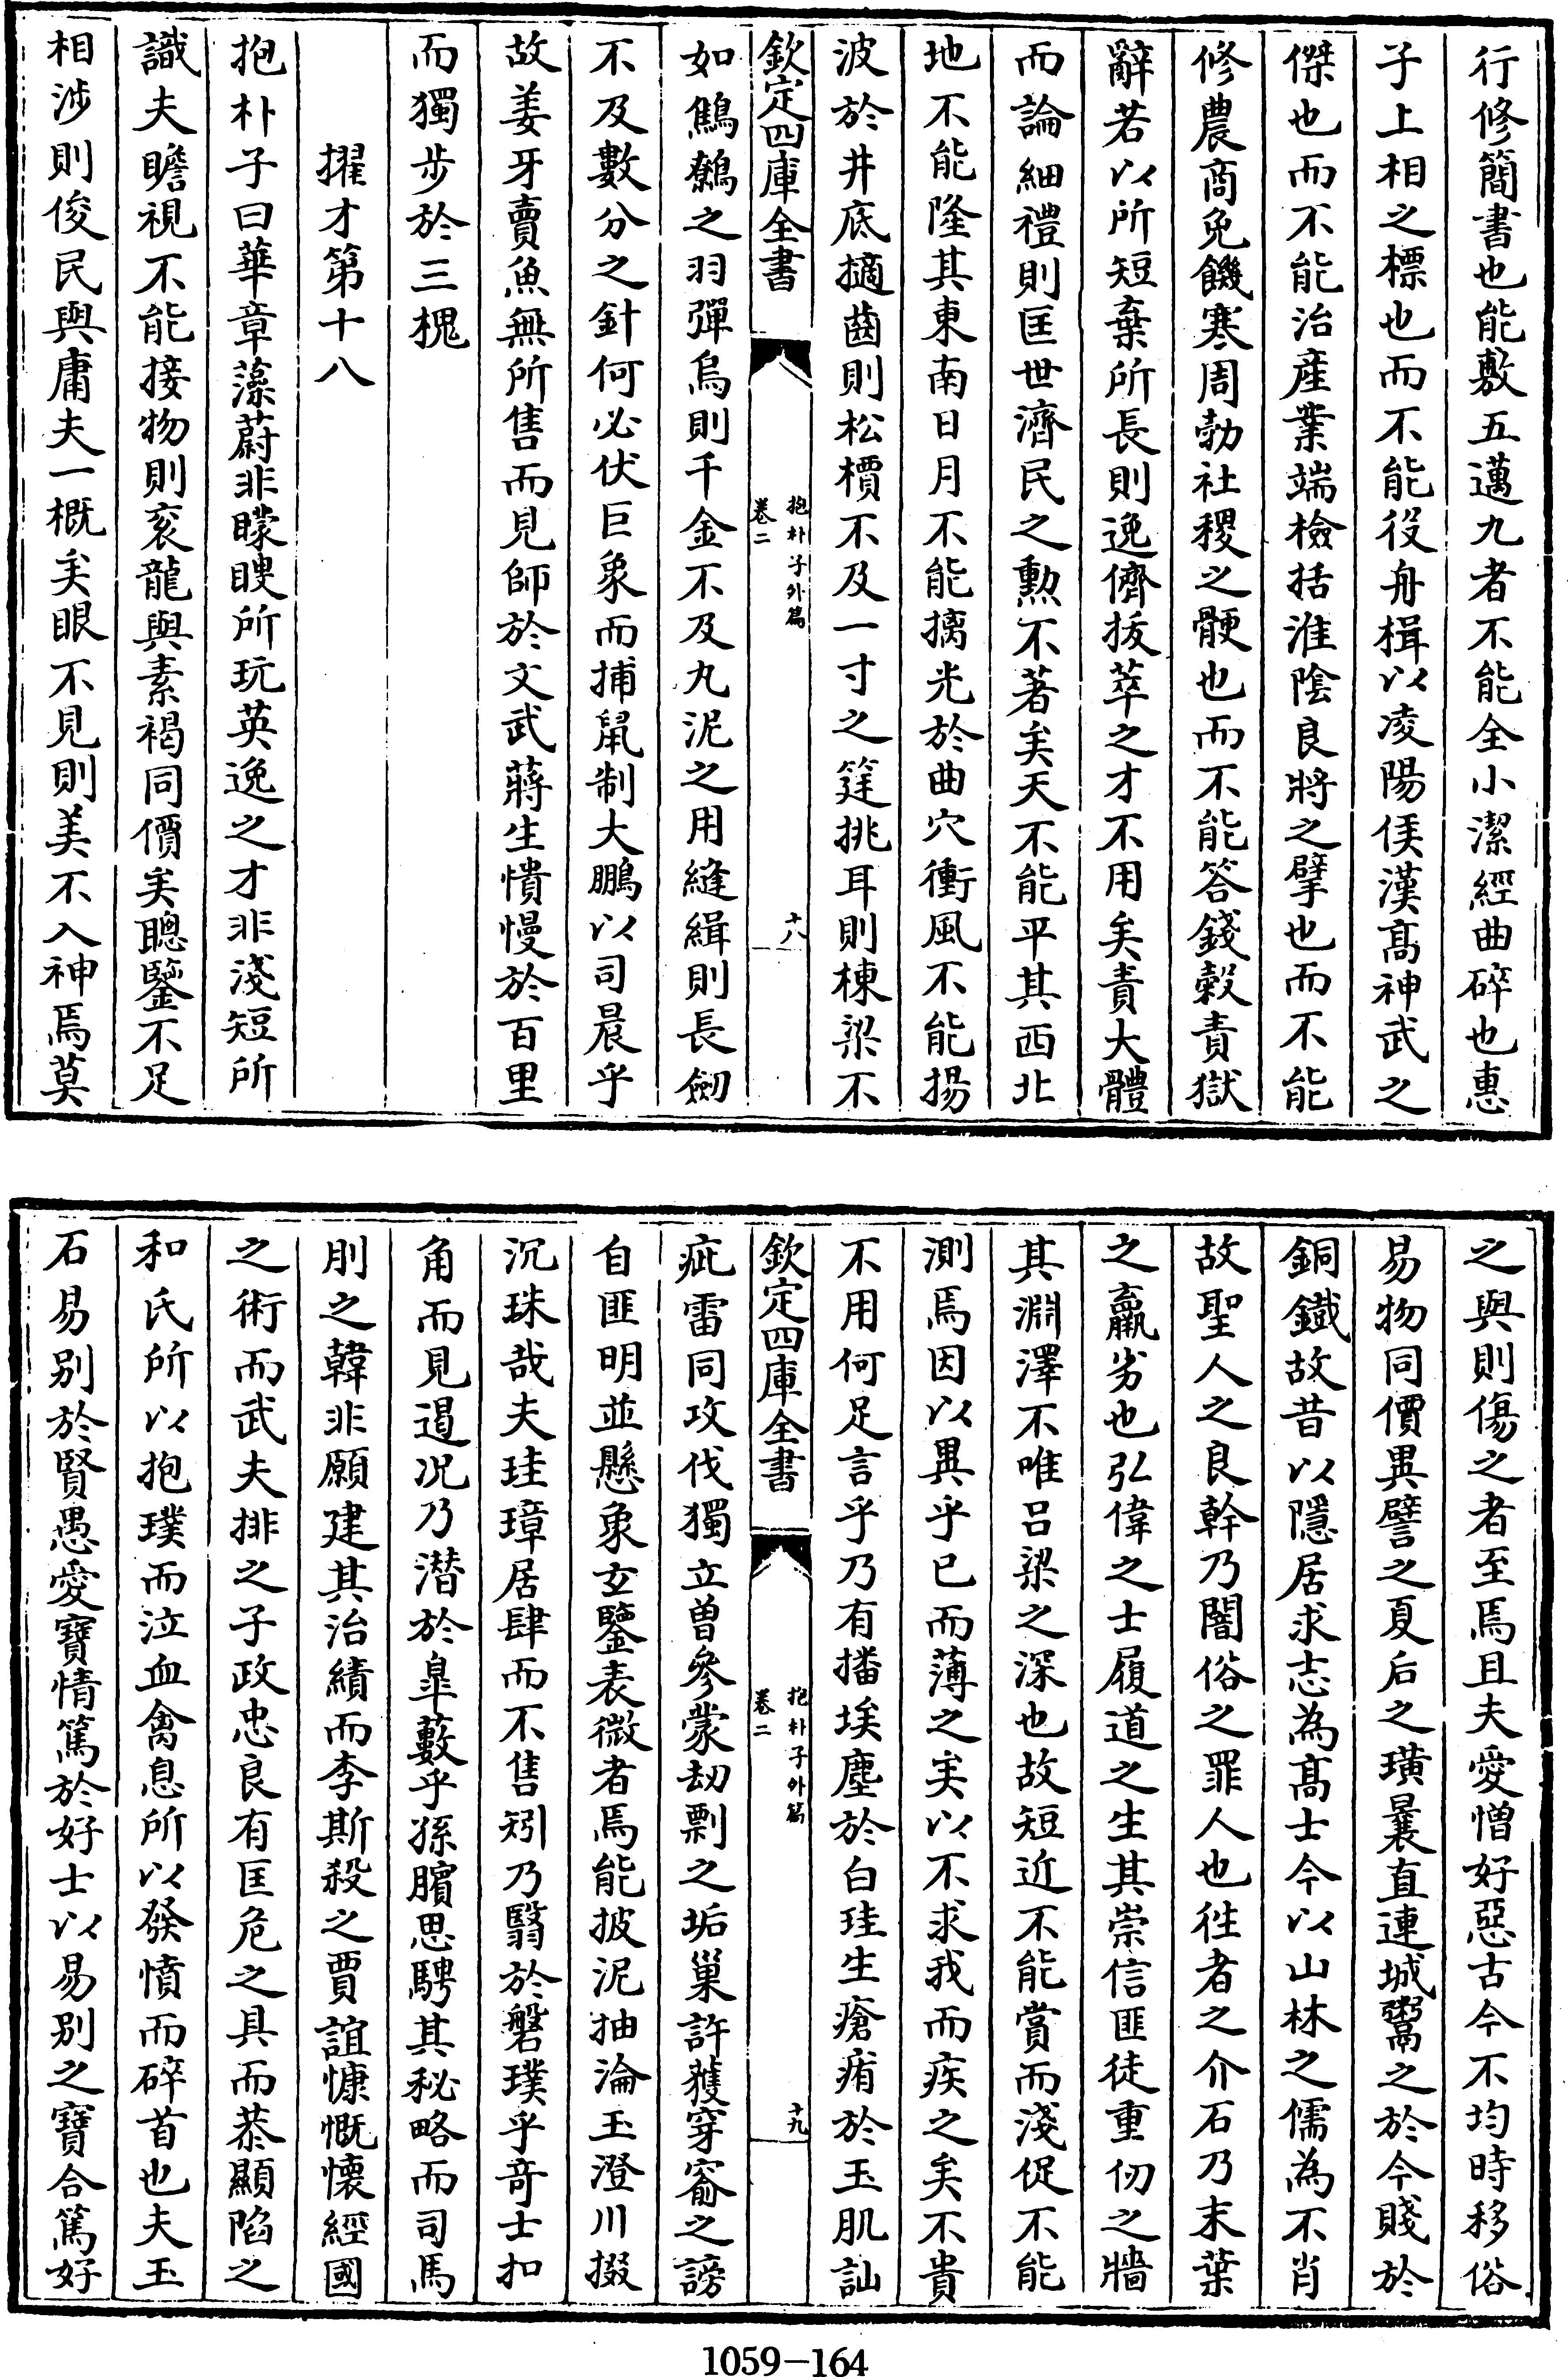 行修簡書也能敷五邁九者不能全小潔經曲碎也惠
子上相之標也而不能役舟楫以凌陽侯漢高神武之
傑也而不能治產業端檢括淮陰良將之擘也而不能
修農商免饑寒周勃社稷之骾也而不能答錢穀責獄
辭若以所短棄所長則逸儕拔萃之才不用矣責大體
而論細禮則匡世濟民之勲不著矣天不能平其西北
地不能隆其東南日月不能摛光於曲穴衝風不能揚
波於井底擿齒則松檟不及一寸之筳挑耳則棟梁不
欽定四庫全書
抱朴子外篇
卷二
十八
如鷦鷯之羽彈烏則千金不及丸泥之用縫緝則長劒
不及數分之針何必伏巨象而捕鼠制大鵬以司晨乎
故姜牙賣魚無所售而見師於文武蔣生憒慢於百里
而獨步於三槐
擢才第十八
抱朴子曰華章藻蔚非矇瞍所玩英逸之才非淺短所
識夫瞻視不能接物則袞龍與素褐同價矣聰鑒不足
相渉則俊民與庸夫一概矣眼不見則美不入神焉莫
之與則傷之者至焉且夫愛憎好惡古今不均時移俗
易物同價異譬之夏后之璜曩直連城鬻之於今賤於
銅鐵故昔以隱居求志為高士今以山林之儒為不肖
故聖人之良幹乃闇俗之罪人也徃者之介石乃末葉
之羸劣也弘偉之士履道之生其崇信匪徒重仞之牆
其淵澤不唯呂梁之深也故短近不能賞而淺促不能
測焉因以異乎已而薄之矣以不求我而疾之矣不貴
不用何足言乎乃有播埃塵於白珪生瘡痏於玉肌訕
欽定四庫全書
抱朴子外篇
卷二
十九
疵雷同攻伐獨立曽參蒙刼剽之垢巢許獲穿窬之謗
自匪明並懸象玄鑒表微者焉能披泥抽淪玉澄川掇
沉珠哉夫珪璋居肆而不售矧乃翳於磐璞乎奇士扣
角而見遏况乃潛於臯藪乎孫臏思騁其秘略而司馬
刖之韓非願建其治績而李斯殺之賈誼慷慨懐經國
之術而武夫排之子政忠良有匡危之具而恭顯陷之
和氏所以抱璞而泣血禽息所以發憤而碎首也夫玉
石易別於賢愚愛寶情篤於好士以易別之寶合篤好
1059-164